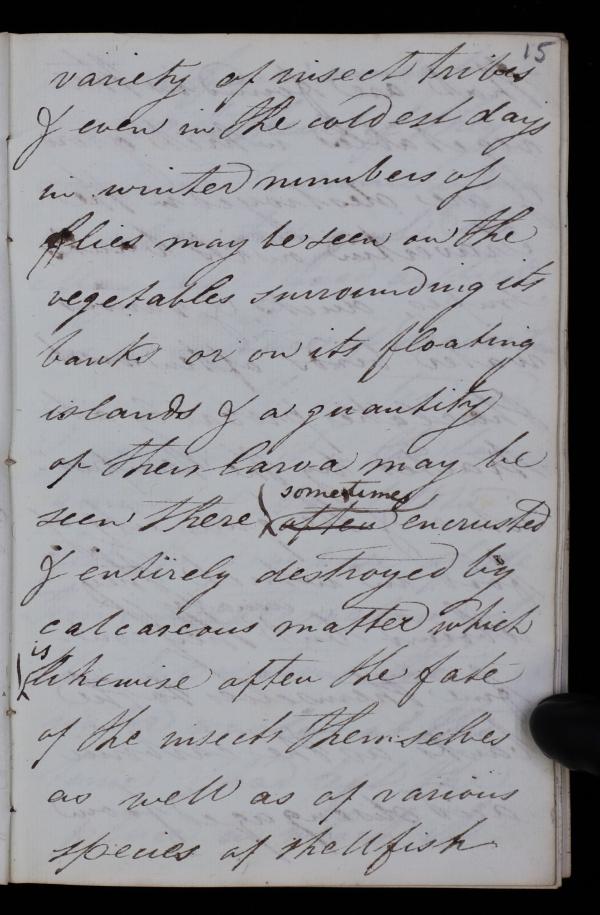 15
variety of insect tribes
& even in the coldest days
in winter numbers of
flies may be seen on the
vegetables surrounding its
banks or on its floating
islands & a quantity
of their larva may be
sometimes
seen there often encrusted
& entirely destroyed by
calcareous matter which
is
likewise often the fate
of the insects themselves
as well as of various
species of shellfish